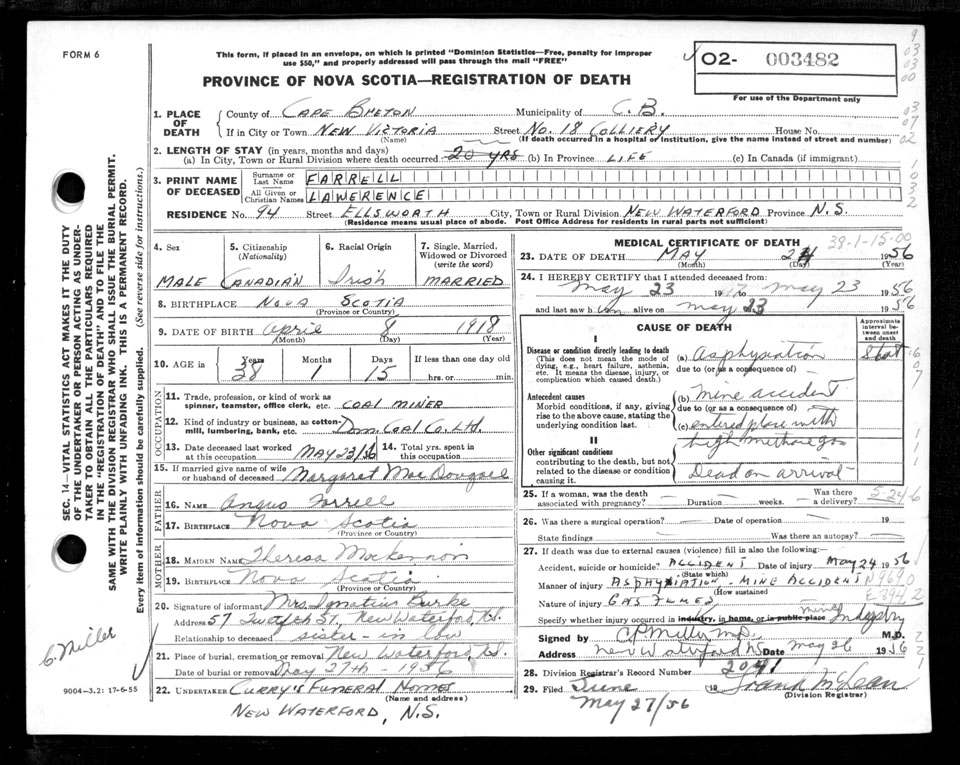 FORM 6
This form, if placed in an envelope, on which is printed "Dominion Statistics—Free, penalty for improper
use $50," and properly addressed will pass through the mail "FREE"
PROVINCE OF NOVA SCOTIA—REGISTRATION OF DEATH
O2- 003482
For use of the Department only
1. PLACE OF DEATH
County of CAPE BRETON Municipality of C.B.
If in City or Town NEW VICTORIA Street No. 18 COLLIERY House No.
(Name) (If death occurred in a hospital or institution, give the name instead of street and number)
2. LENGTH OF STAY (in years, months and days)
(a) In City, Town or Rural Division where death occurred 20 YRS (b) In Province LIFE (c) In Canada (if immigrant)
3. PRINT NAME OF DECEASED
Surname or Last Name FARRELL
All Given or Christian Names LAWERENCE
RESIDENCE No. 94 Street ELLSWORTH City, Town or Rural Division NEW WATERFORD Province N.S.
(Residence means usual place of abode. Post Office Address for residents in rural parts not sufficient)
4. Sex
MALE
5. Citizenship (Nationality)
CANADIAN
6. Racial Origin
Irish
7. Single, Married, Widowed or Divorced (write the word)
MARRIED
8. BIRTHPLACE NOVA SCOTIA
(Province or Country)
9. DATE OF BIRTH April 8 1918
(Month) (Day) (Year)
10. AGE in Years Months Days If less than one day old
38 1 15 hrs. or min.
OCCUPATION
11. Trade, profession, or kind of work as
spinner, teamster, office clerk, etc. COAL MINER
12. Kind of industry or business, as cotton-
mill, lumbering, bank, etc. Dom. Coal Co. Ltd.
13. Date deceased last worked at this occupation MAY 23/56
14. Total yrs. spent in this occupation
15. If married give name of wife
or husband of deceased Margaret MacDougall
FATHER
16. NAME Angus Farrell
17. BIRTHPLACE Nova Scotia
(Province or Country)
MOTHER
18. MAIDEN NAME Theresa MacKinnon
19. BIRTHPLACE Nova Scotia
(Province or Country)
20. Signature of informant Mrs. Ignatius Burke
Address 57 Twelfth St., New Waterford, N.S.
Relationship to deceased sister-in law
21. Place of burial, cremation or removal New Waterford, N.S.
Date of burial or removal May 27th - 1956
22. UNDERTAKER CURRY'S FUNERAL HOME
(Name and address)
NEW WATERFORD, N.S.
9004—3.2: 17-6-55
MEDICAL CERTIFICATE OF DEATH
38-1-15-00
23. DATE OF DEATH MAY 24 1956
(Month) (Day) (Year)
24. I HEREBY CERTIFY that I attended deceased from
May 23 19 to May 23 1956
and last saw h im alive on May 23 1956
CAUSE OF DEATH
Approximate interval between onset and death
I
Disease or condition directly leading to death
(This does not mean the mode of dying, e.g., heart failure, asthenia, etc. It means the disease, injury, or complication which caused death.)
(a) Asphyxiation Short
due to (or as a consequence of)
Antecedent causes
Morbid conditions, if any, giving rise to the above cause, stating the underlying condition last.
(b) mine accident
due to (or as a consequence of)
(c) entered place with
high methane gas
II
Other significant conditions
contributing to the death, but not related to the disease or condition causing it.
Dead on arrival
25. If a woman, was the death associated with pregnancy? — Duration — weeks. Was there a delivery? —
5-24-6
26. Was there a surgical operation? — Date of operation — 19
State findings Was there an autopsy? —
27. If death was due to external causes (violence) fill in also the following:
Accident, suicide or homicide? ACCIDENT Date of injury MAY 24 1956
(State which)
Manner of injury ASPHYXIATION - MINE ACCIDENT N969.0
(How sustained)
Nature of injury GAS FUMES
Specify whether injury occurred in industry, in home, or in public place mine Industry
Signed by C P Miller M.D. M.D.
Address New Waterford NS Date May 26 1956
28. Division Registrar's Record Number 2041
29. Filed June 19 Frank McLean
(Division Registrar)
May 27/56
C. Miller
SEC. 14—VITAL STATISTICS ACT MAKES IT THE DUTY
OF THE UNDERTAKER OR PERSON ACTING AS UNDER-
TAKER TO OBTAIN ALL THE PARTICULARS REQUIRED
IN THE "REGISTRATION OF DEATH" AND TO FILE THE
SAME WITH THE DIVISION REGISTRAR WHO SHALL ISSUE THE BURIAL PERMIT.
WRITE PLAINLY WITH UNFADING INK. THIS IS A PERMANENT RECORD.
Every item of information should be carefully supplied. (See reverse side for instructions.)